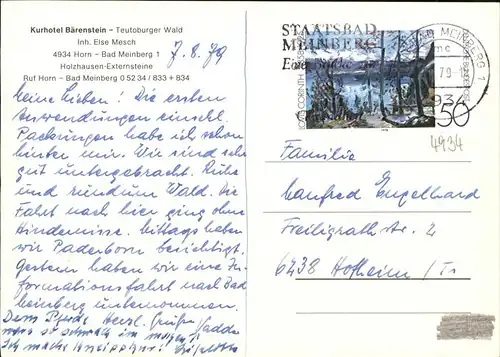 Kurhotel Bärenstein – Teutoburger Wald
Inh. Else Mesch
4934 Horn – Bad Meinberg 1
Holzhausen-Externsteine
Ruf Horn – Bad Meinberg 0 52 34 / 833 + 834
7.8.79
Meine Lieben! Die ersten
Anwendungen einschl.
Packungen habe ich schon
hinter mir. Wir sind sehr
gut untergebracht. Ruhe
und rundum Wald. Die
Fahrt nach hier ging ohne
Hindernisse. Mittags haben
wir Paderborn besichtigt.
Gestern haben wir eine In-
formationsfahrt nach Bad
Meinberg unternommen.
Herzl. Grüße
Ich mache
STAATSBAD
MEINBERG
BAD MEINBERG 1
LOVIS CORINTH
50
4934
Familie
Manfred Engelhard
Freiligrath str. 2
6238 Hofheim/Ts